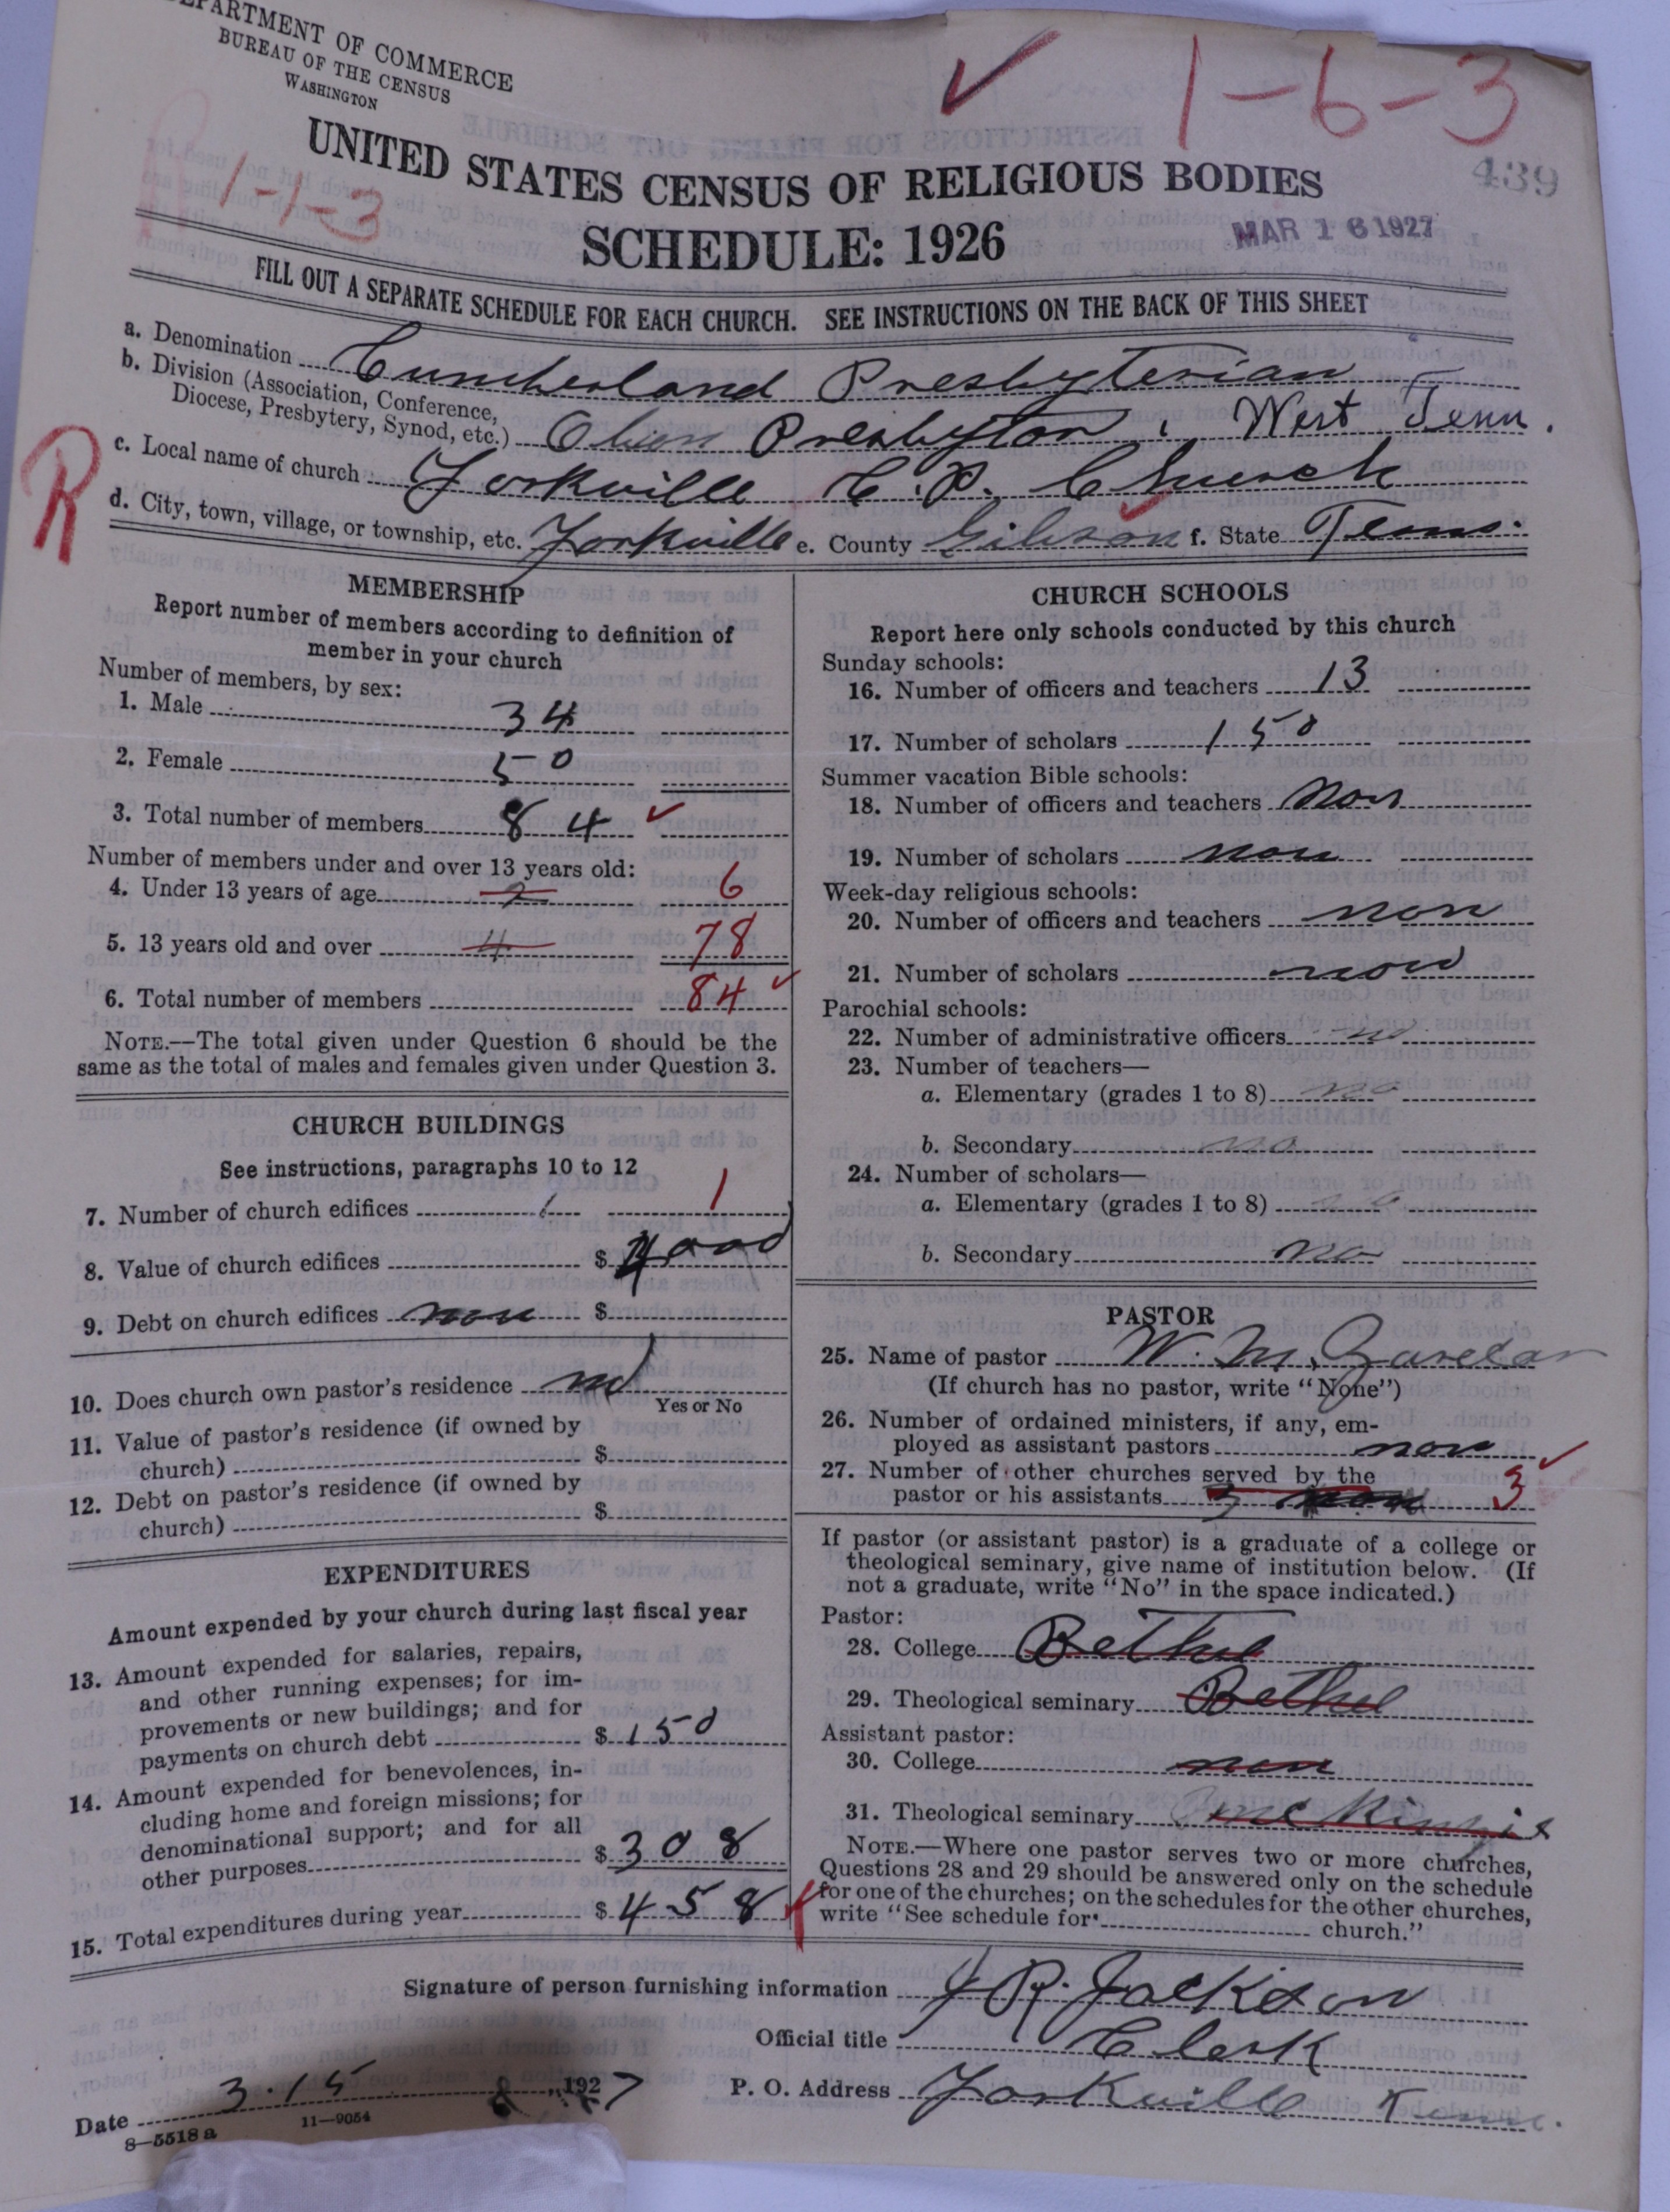 DEPARTMENT OF COMMERCE
BUREAU OF THE CENSUS
WASHINGTON
1-6-3
439
1-1-3
UNITED STATES CENSUS OF RELIGIOUS BODIES
SCHEDULE: 1926
MAR 16 1927
FILL OUT A SEPARATE SCHEDULE FOR EACH CHURCH. SEE INSTRUCTIONS ON THE BACK OF THIS SHEET
a. Denomination Cumberland Presbyterian
b. Division (Association, Conference,
Diocese, Presbytery, Synod, etc.) Obion Presbytery, West Tenn.
R
c. Local name of church Yorkville C.P. Church
d. City, town, village, or township, etc. Yorkville e. County Gibson f. State Tenn.
MEMBERSHIP
Report number of members according to definition of
member in your church
Number of members, by sex:
1. Male 34
2. Female 50
3. Total number of members 84
Number of members under and over 13 years old:
4. Under 13 years of age 2 6
5. 13 years old and over 4 78
6. Total number of members 84
NOTE.—The total given under Question 6 should be the
same as the total of males and females given under Question 3.
CHURCH BUILDINGS
See instructions, paragraphs 10 to 12
7. Number of church edifices 1 1
8. Value of church edifices $ 4000
9. Debt on church edifices non $
10. Does church own pastor's residence no
Yes or No
11. Value of pastor's residence (if owned by
church) $
12. Debt on pastor's residence (if owned by
church) $
EXPENDITURES
Amount expended by your church during last fiscal year
13. Amount expended for salaries, repairs,
and other running expenses; for im-
provements or new buildings; and for
payments on church debt $ 150
14. Amount expended for benevolences, in-
cluding home and foreign missions; for
denominational support; and for all
other purposes $ 308
15. Total expenditures during year $ 458
CHURCH SCHOOLS
Report here only schools conducted by this church
Sunday schools:
16. Number of officers and teachers 13
17. Number of scholars 150
Summer vacation Bible schools:
18. Number of officers and teachers non
19. Number of scholars non
Week-day religious schools:
20. Number of officers and teachers non
21. Number of scholars non
Parochial schools:
22. Number of administrative officers
23. Number of teachers—
a. Elementary (grades 1 to 8) no
b. Secondary no
24. Number of scholars—
a. Elementary (grades 1 to 8) no
b. Secondary no
PASTOR
25. Name of pastor W. M.
(If church has no pastor, write "None")
26. Number of ordained ministers, if any, em-
ployed as assistant pastors non
27. Number of other churches served by the
pastor or his assistants 3 3
If pastor (or assistant pastor) is a graduate of a college or
theological seminary, give name of institution below. (If
not a graduate, write "No" in the space indicated.)
Pastor:
28. College Bethel
29. Theological seminary Bethel
Assistant pastor:
30. College non
31. Theological seminary McKinzie
NOTE.—Where one pastor serves two or more churches,
Questions 28 and 29 should be answered only on the schedule
for one of the churches; on the schedules for the other churches,
write "See schedule for church."
Signature of person furnishing information J R. Jackson
Official title Clerk
Date 3.15, 1927 P. O. Address Yorkville Tenn.
8—5518a 11—9054